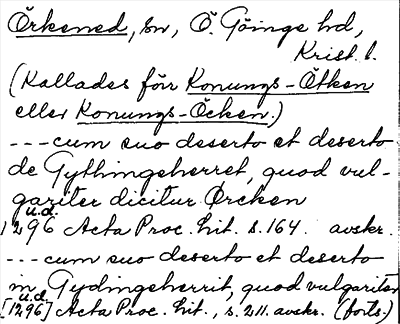 Örkened, sn, Ö. Göinge hd,
Krist. l.
(Kallades förr Konungs-Ötken
eller Konungs-Öcken.)
---cum suo deserto et deserto
de Gythingeherret, quod vul-
gariter dicitur Ørcken
u.d.
1296 Acta Proc. Lit. s. 164. avskr.
---cum suo deserto et deserto
in Gydingeherrit, quod vulgariter
u.d.
[1296] Acta Proc. Lit., s. 211. avskr. (forts.)